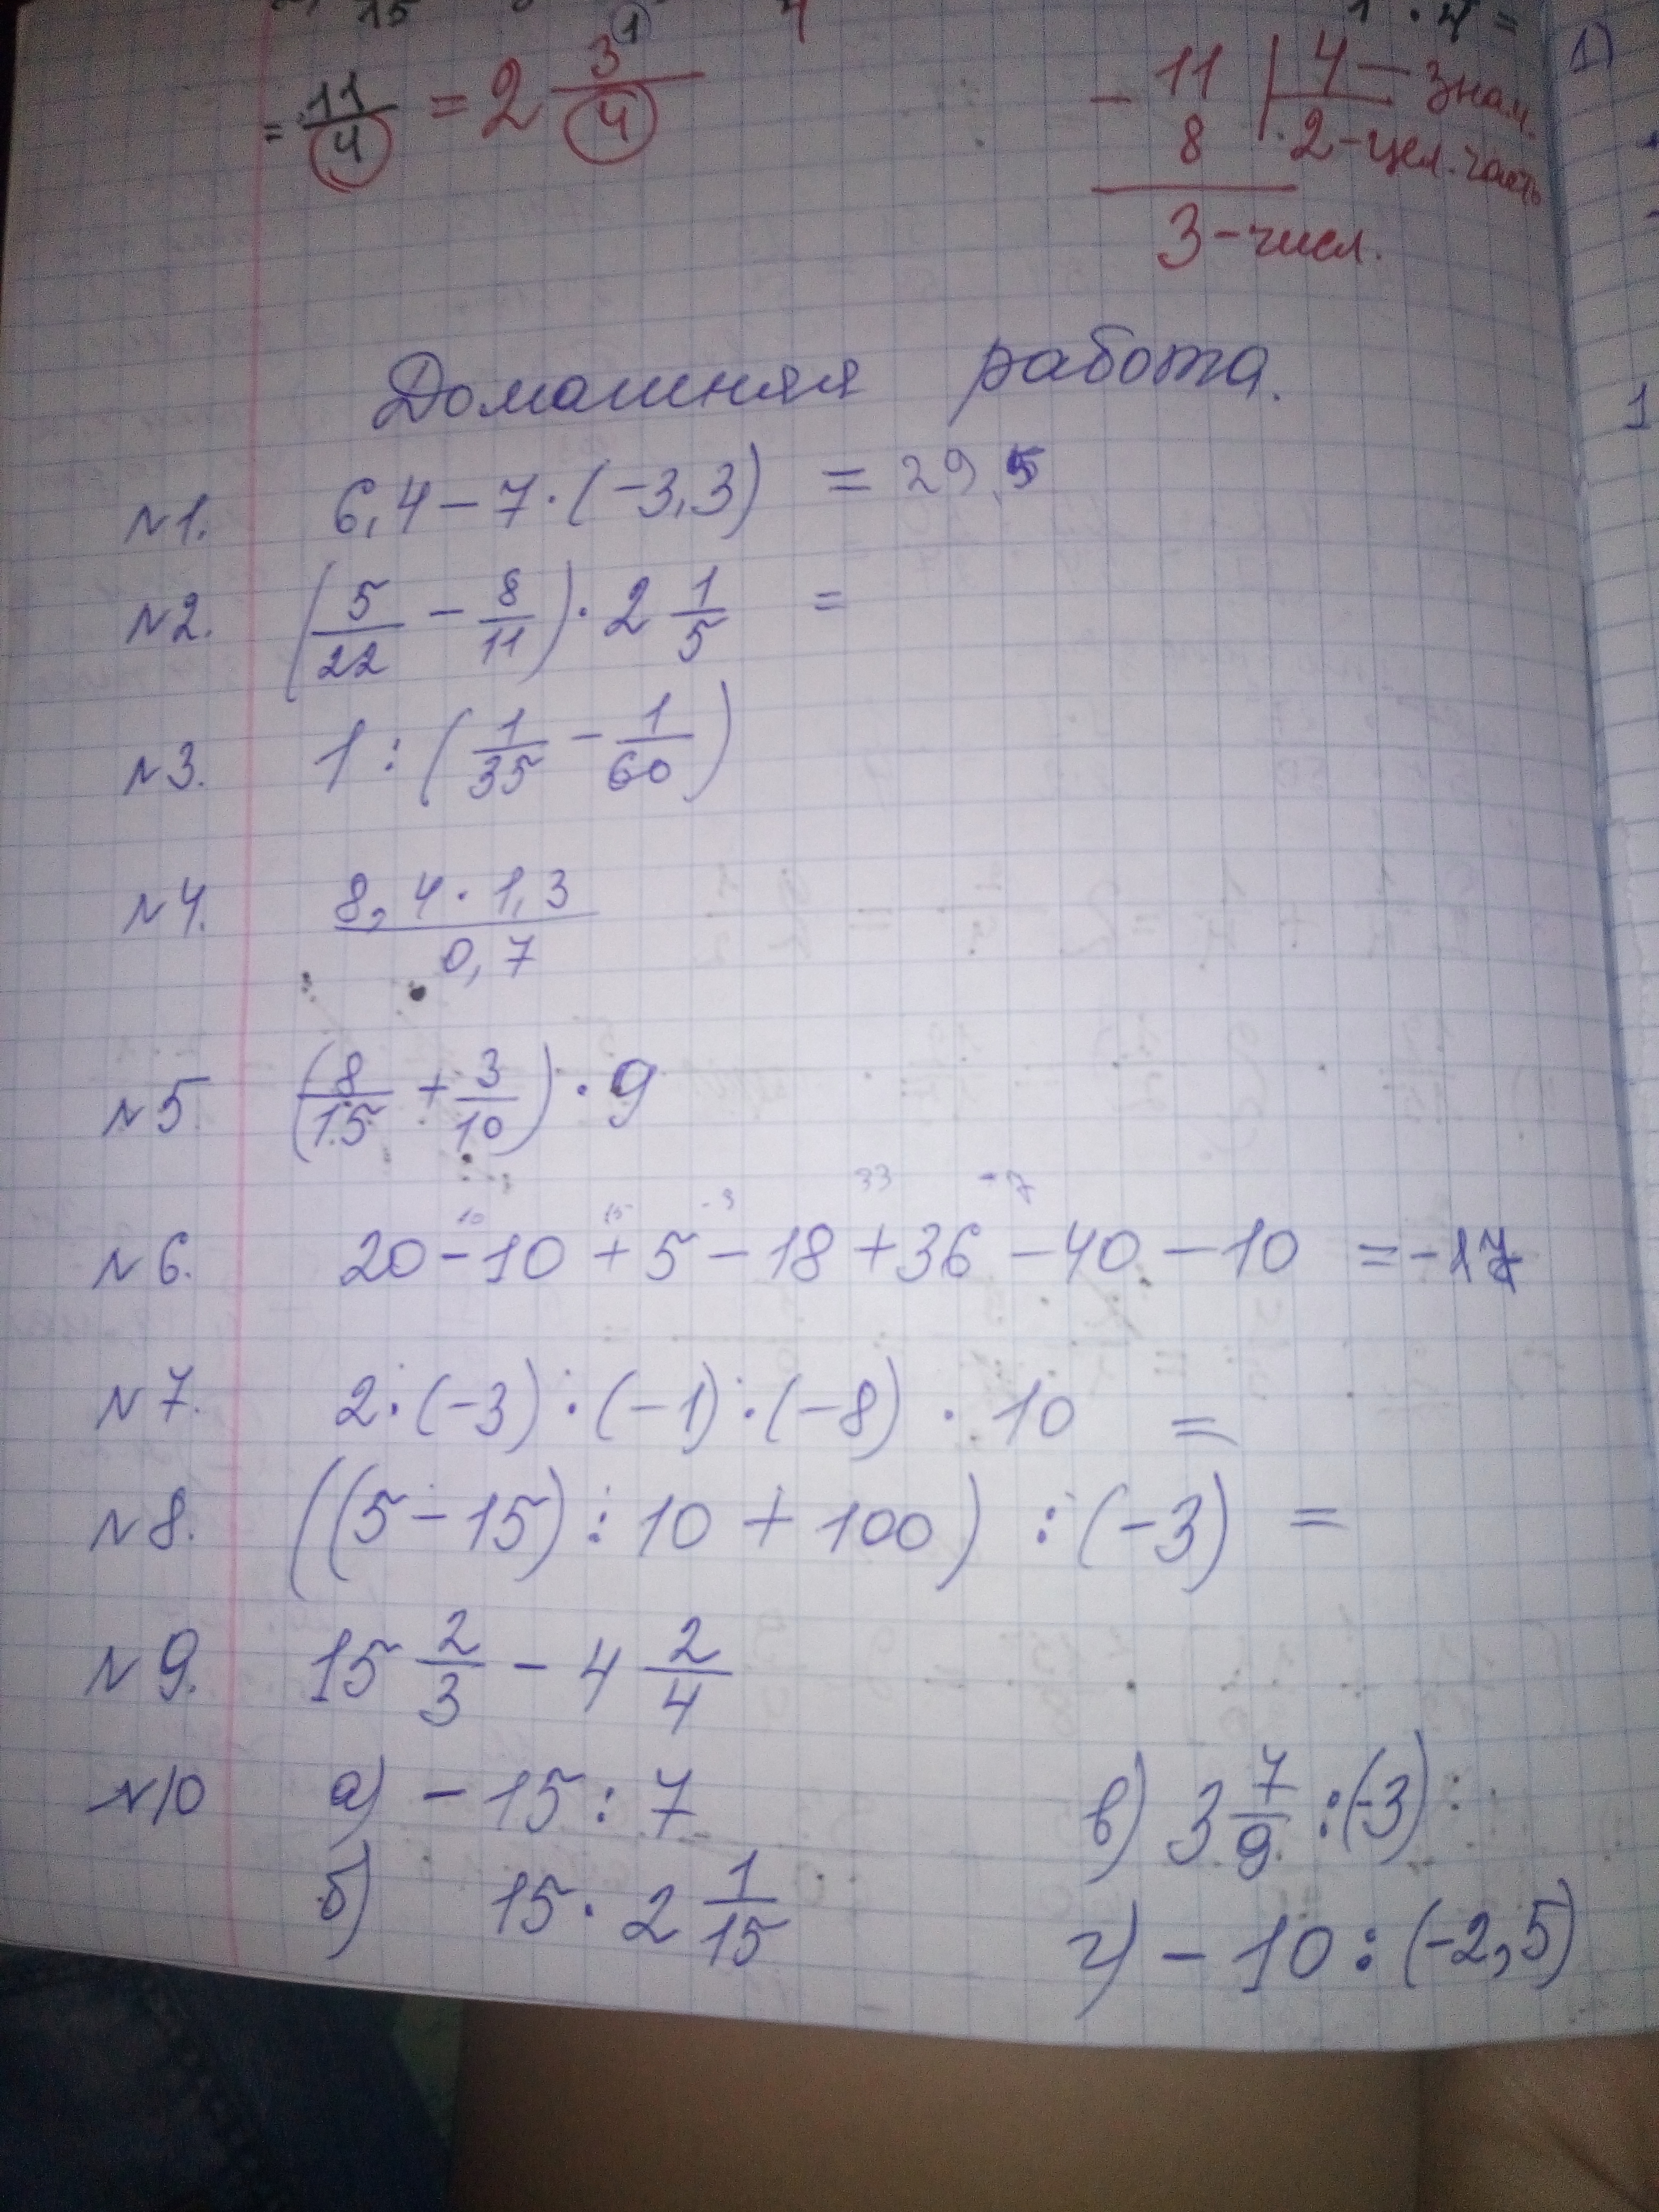 = 11/4 = 2 3/4
- 11 | 4 - знам.
8 2 - цел. часть
3 - числ.
Домашняя работа.
№1. 6,4 - 7 · (-3,3) = 29,5
№2. (5/22 - 8/11) · 2 1/5 =
№3. 1 : (1/35 - 1/60)
№4. 8,4 · 1,3 / 0,7
№5 (8/15 + 3/10) · 9
10 15 -3 33 -7
№6. 20 - 10 + 5 - 18 + 36 - 40 - 10 = -17
№7. 2 · (-3) · (-1) · (-8) · 10 =
№8. ((5 - 15) : 10 + 100) : (-3) =
№9. 15 2/3 - 4 2/4
№10 а) - 15 : 7
в) 3 7/9 : (-3)
б) 15 · 2 1/15
г) - 10 : (-2,5)
1)
1